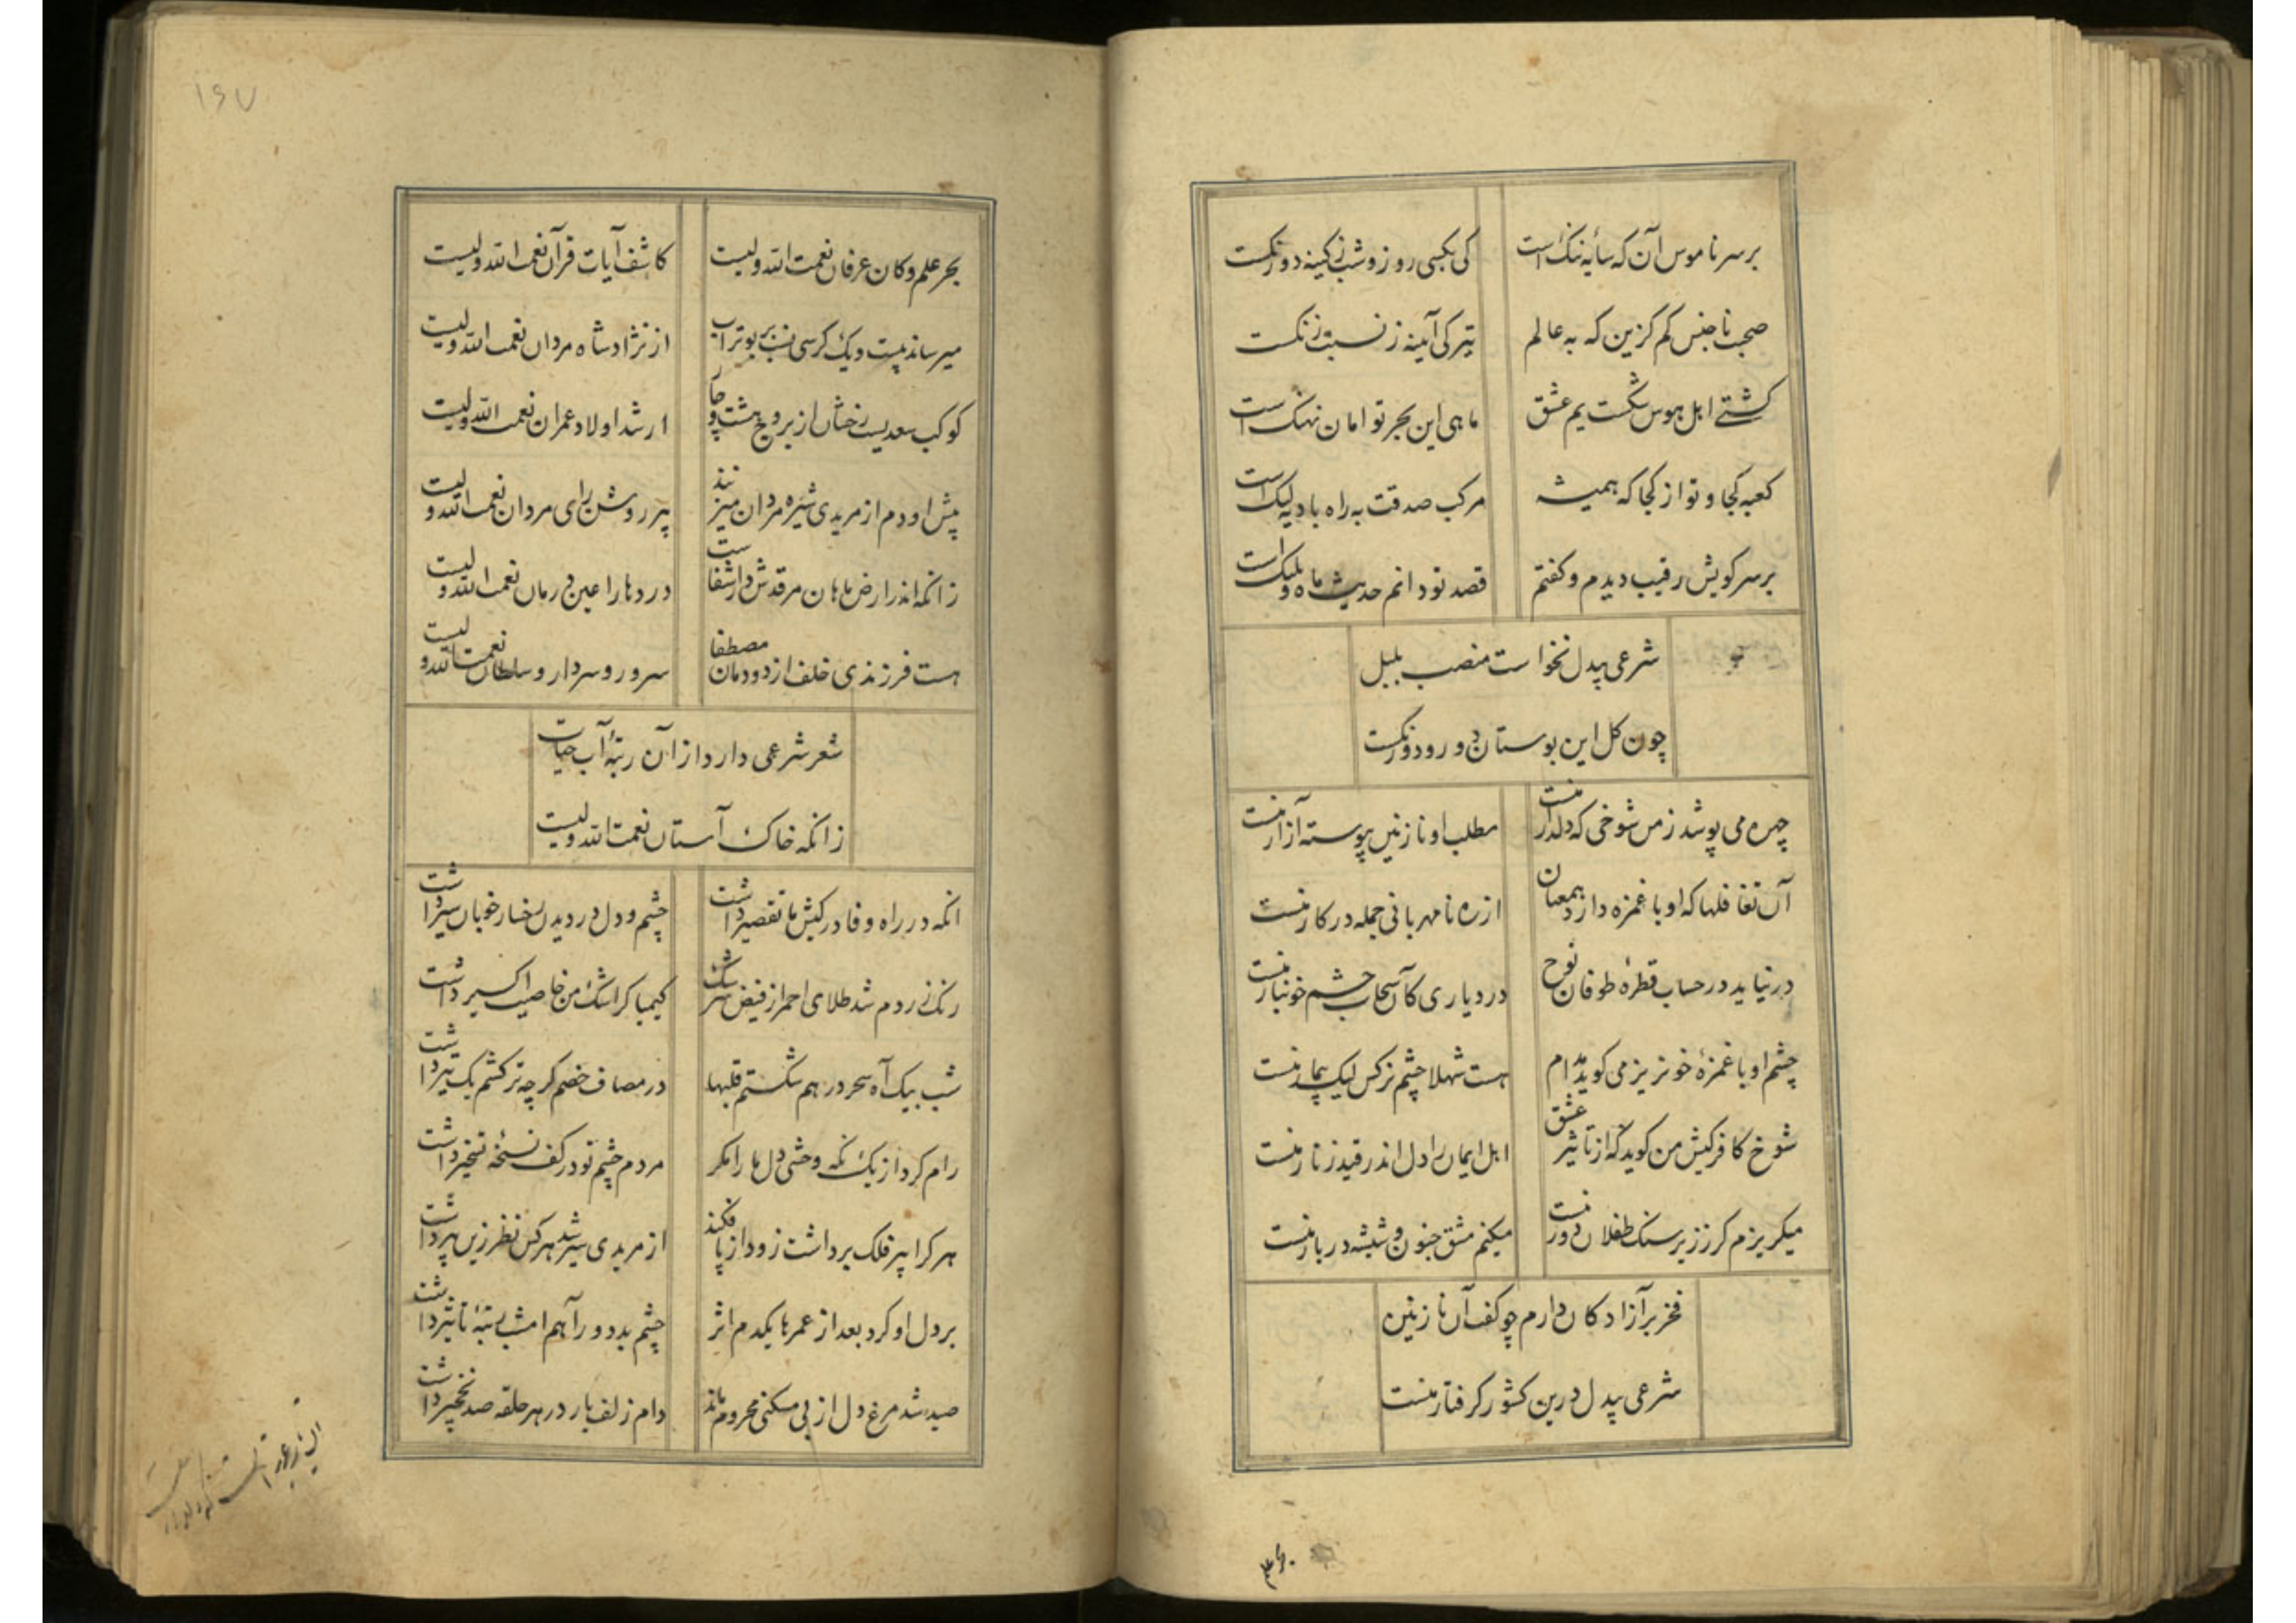 برسر ناموس آن که سایه ننگ است
کی بکسی روز و شب ز کینه دورنگست
صحبت ناجنس کم گزین که به عالم
تیرگی آینه ز نسبت زنگست
کشتے اهل هوس شکست یم عشق
ماهی این بحر تو امان نهنگ است
کعبه کجا و تو از کجا که همیشه
مرکب صدقت به راه بادیه لنگ است
برسر کویش رقیب دیدم و گفتم
قصد تو دانم حدیث ماه و پلنگ است
شرعی بیدل نخواست منصب بلبل
چون گل این بوستان دو رو دورنگست
چهره می پوشد ز من شوخی که دلدار منست
مطلب او نازنین پیوسته آزار منست
آن تغافلها که او با غمزه دارد همعنان
از ره نامهربانی جمله در کار منست
در نیاید در حساب قطرهٔ طوفان نوح
در دیاری کآن سحاب چشم خونبار منست
چشم او با غمزهٔ خونریز می گوید مدام
هست شهلا چشم نرگس لیک بیمار منست
شوخ کافر کیش من گوید که از تاثیر عشق
اهل ایمان را دل اندر قید زنار منست
میگریزم گر ز زیر سنگ طفلان دور نیست
میکنم مشق جنون و شیشه در بار منست
فخر بر آزادگان دارم چو گفت آن نازنین
شرعی بیدل درین کشور گرفتار منست
۱۶۷
بحر علم و کان عرفان نعمت الله ولیست
کاشف آیات قرآن نعمت الله ولیست
میرساند بیست و یک کرسی نسب بر بوتراب
از نژاد شاه مردان نعمت الله ولیست
کوکب سعدیست رخشان از بروج هشت و چار
ارشد اولاد عمران نعمت الله ولیست
پیش او دم از مریدی شیره مردان میزنند
پیر روشن رای مردان نعمت الله ولیست
زانکه اندر ارض ماهان مرقدش دار شفاست
دردها را عین درمان نعمت الله ولیست
هست فرزندی خلف از دودمان مصطفا
سرور و سردار و سلطان نعمت الله ولیست
شعر شرعی دارد از آن رتبهٔ آب حیات
زانکه خاک آستان نعمت الله ولیست
انکه در راه وفا در کیش ما تقصیر داشت
چشم و دل در دیدن رخسار خوبان سیر داشت
رنگ زردم شد طلای احمر از فیض سرشک
کیمیاگر اشک من خاصیت اکسیر داشت
شب بیک آه سحر درهم شکستم قلبها
در مصاف خصم گرچه ترکشم یک تیر داشت
رام کرد از یک نگه وحشی دل ها را مگر
مردم چشم تو در کف نسخهٔ تسخیر داشت
هر کرا پیر فلک برداشت زود از پا فکند
از مریدی سیر شد هر کس نظر زین پیر داشت
بر دل او کرد بعد از عمرها یکدم اثر
چشم بد دور آهم امشب رتبهٔ تاثیر داشت
صید شد مرغ دل از بی مسکنی محروم ماند
دام زلف یار در هر حلقه صد نخجیر داشت